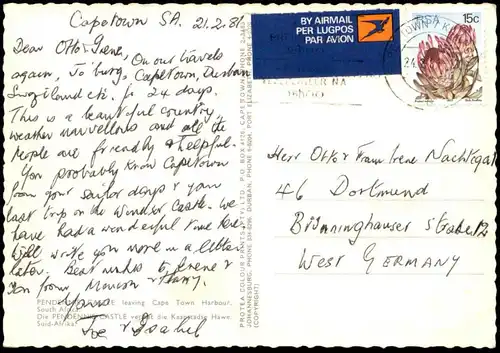 Capetown SA. 21.2.81
Dear Otto & Irene, On our travels
again, Jo'burg, Capetown, Durban
Swaziland etc. for 24 days.
This is a beautiful country,
weather marvellous and all the
people are friendly & helpful.
You probably know Capetown
from your sailor days & your
last trip on the Windsor Castle. We
have had a wonderful time here.
Will write you more in a letter
later. Best wishes to Irene &
You from
Joe & Isabel
PENDENNIS CASTLE leaving Cape Town Harbour,
South Africa.
Die PENDENNIS CASTLE verlaat die Kaapstadse Hawe,
Suid-Afrika.
PROTEA COLOUR PRINTS (PTY) LTD. P.O. BOX
JOHANNESBURG, PHONE
(COPYRIGHT)
BY AIRMAIL
PER LUGPOS
PAR AVION
RSA 15c
Herr Otto & Frau Irene Nachtigall
46 Dortmund
Brünninghauser Straße
WEST GERMANY